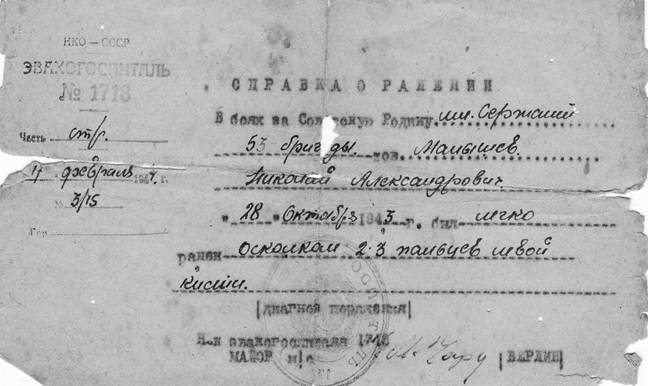 НКО — СССР
ЭВАКОГОСПИТАЛЬ
№ 1718
Часть стр.
4 февраль 194 г.
№ 3/15
Гор
СПРАВКА О РАНЕНИИ
В боях за Советскую Родину мл. Сержант
53 бригады тов. Малышев
Николай Александрович
" 28 " Октября 1943 г. был легко
ранен Осколком 2-3 пальцев левой
кисти.
[диагноз поражения]
Нач эвакогоспиталя 1718
МАЙОР м/с [БЕРЛИН]